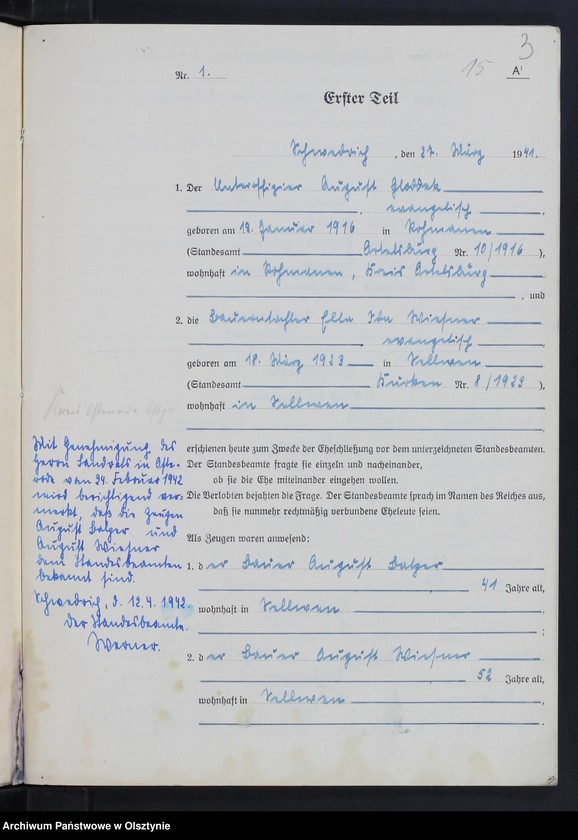 3
15
A¹
Nr. 1.
Erster Teil
Schwedrich, den 27. März 1941.
1. Der Unteroffizier August Gloddek
, evangelisch,
geboren am 18. Januar 1916 in Kohmanen
(Standesamt Ortelsburg Nr. 10/1916),
wohnhaft in Kohmanen, Kreis Ortelsburg
, und
2. die Bauerntochter Ella Ida Wiesner
, evangelisch,
geboren am 18. März 1923 in Sellwen
(Standesamt Kurken Nr. 8/1923),
wohnhaft in Sellwen
erschienen heute zum Zwecke der Eheschließung vor dem unterzeichneten Standesbeamten.
Der Standesbeamte fragte sie einzeln und nacheinander,
ob sie die Ehe miteinander eingehen wollen.
Die Verlobten bejahten die Frage. Der Standesbeamte sprach im Namen des Reiches aus,
daß sie nunmehr rechtmäßig verbundene Eheleute seien.
Als Zeugen waren anwesend:
1. der Bauer August Balzer
41 Jahre alt,
wohnhaft in Sellwen
;
2. der Bauer August Wiesner
52 Jahre alt,
wohnhaft in Sellwen
Mit Genehmigung des
Herrn Landrats in Oste-
rode vom 24. Februar 1942
wird berichtigend ver-
merkt, daß die Zeugen
August Balzer und
August Wiesner
dem Standesbeamten
bekannt sind.
Schwedrich, d. 12.4.1942.
Der Standesbeamte.
Werner.
Archiwum Państwowe w Olsztynie